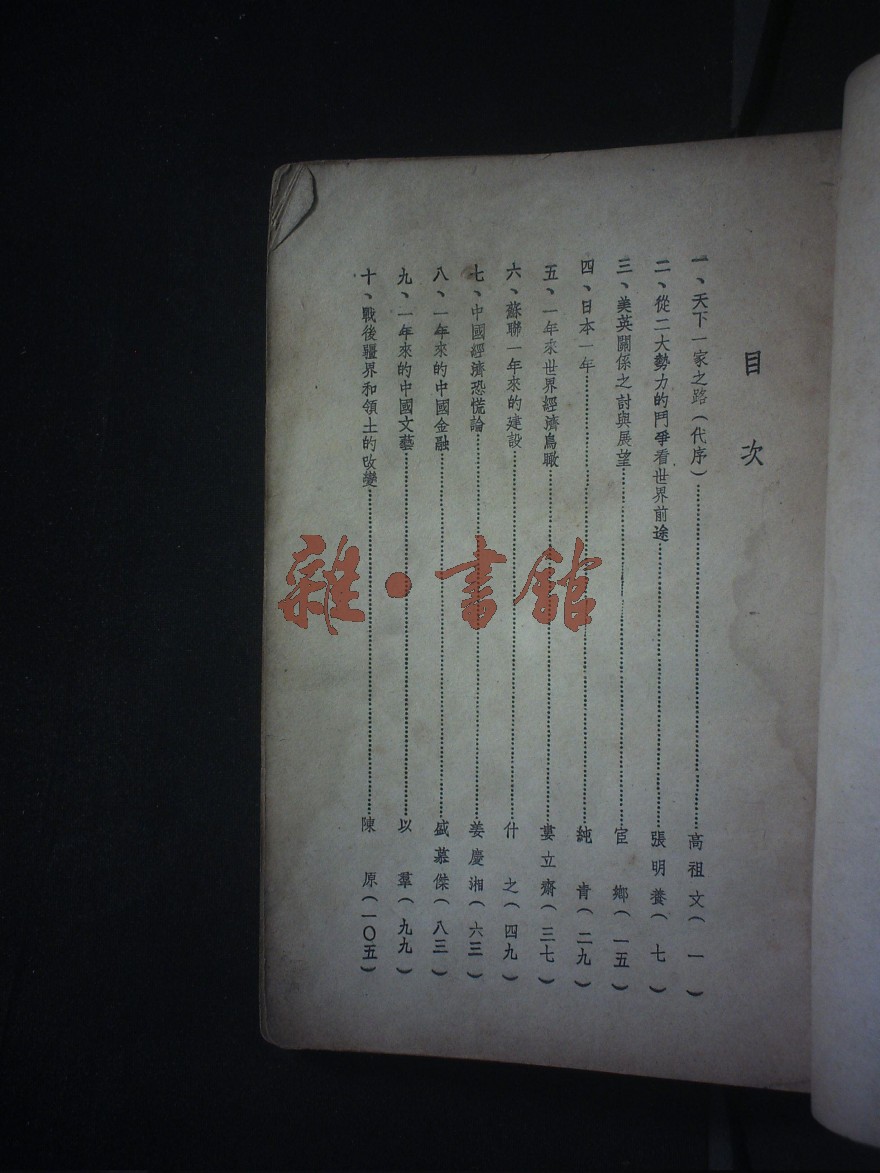 目次
一、天下一家之路（代序）…………高祖文（一）
二、從二大勢力的鬥爭看世界前途…………張明養（七）
三、美英關係之討與展望…………宦鄉（一五）
四、日本一年…………純青（二九）
五、一年來世界經濟鳥瞰…………婁立齋（三七）
六、蘇聯一年來的建設…………什之（四九）
七、中國經濟恐慌論…………姜慶湘（六三）
八、一年來的中國金融…………盛慕傑（八三）
九、一年來的中國文藝…………以羣（九九）
十、戰後疆界和領土的改變…………陳原（一〇五）
雜·書館